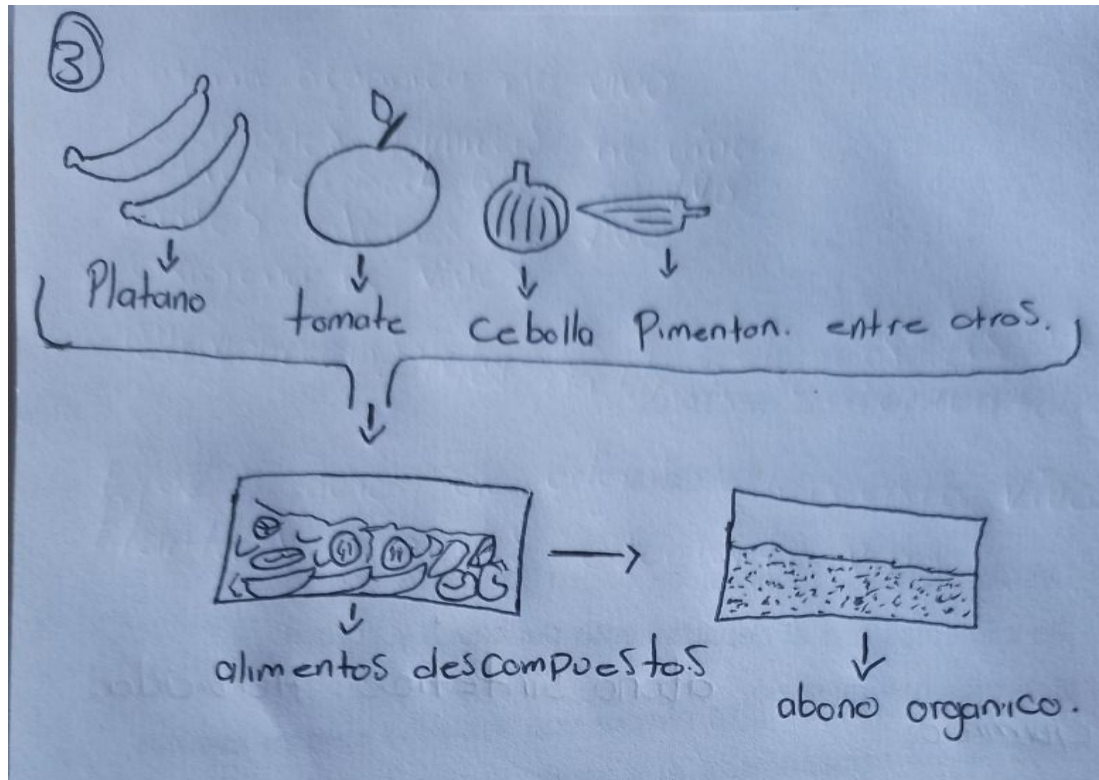 3
Platano
tomate
Cebolla
Pimenton. entre otros.
alimentos descompuestos
abono organico.